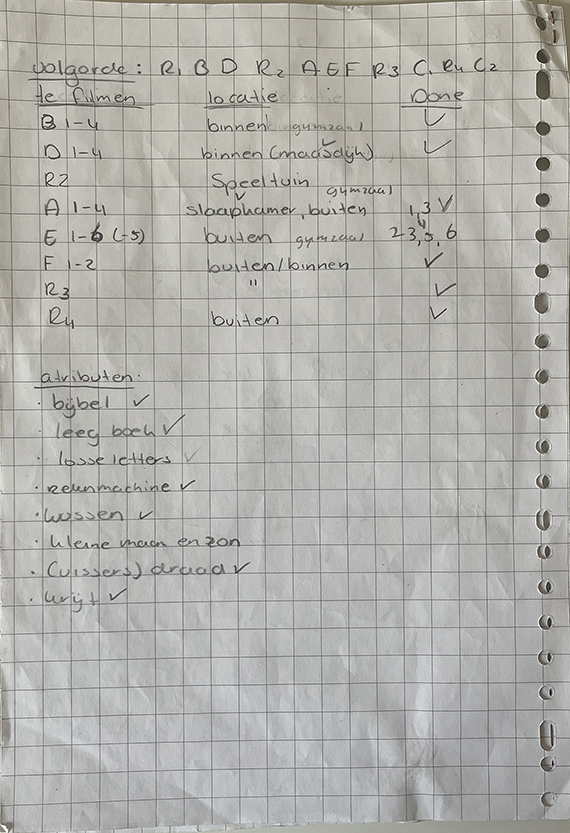 volgorde: R1 B D R2 A E F R3 C1 R4 C2
te filmen locatie Done
B 1-4 binnen gymzaal ✓
D 1-4 binnen (maasdijk) ✓
R2 Speeltuin
A 1-4 slaapkamer, buiten gymzaal 1,3 ✓
E 1-6 (-5) buiten gymzaal 2 3, 4, 5, 6
F 1-2 buiten/binnen ✓
R3 " ✓
R4 buiten ✓
atributen:
· bijbel ✓
· leeg boek ✓
· losse letters ✓
· rekenmachine ✓
· kussen ✓
· kleine maan en zon
· (vissers) draad ✓
· krijt ✓